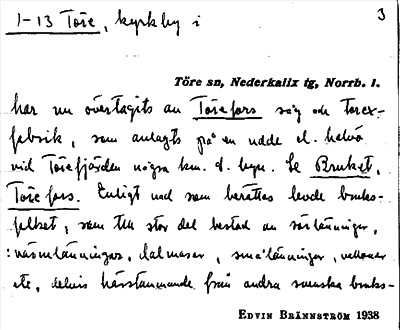 1-13 Töre, kyrkby i 3
Töre sn, Nederkalix tg, Norrb. l.
har nu övertagits av Törefors såg och torex-
fabrik, som anlagts på en udde el. halvö
vid Törefjärden några km. d. byn. Se Bruket,
Törefors. Enligt vad som berättas levde bruks-
folket, som till stor del bestod av sörlänningar,
: värmlänningar, dalmasar, smålänningar, valloner
etc, delvis härstammande från andra svenska bruks-
EDVIN BRÄNNSTRÖM 1938